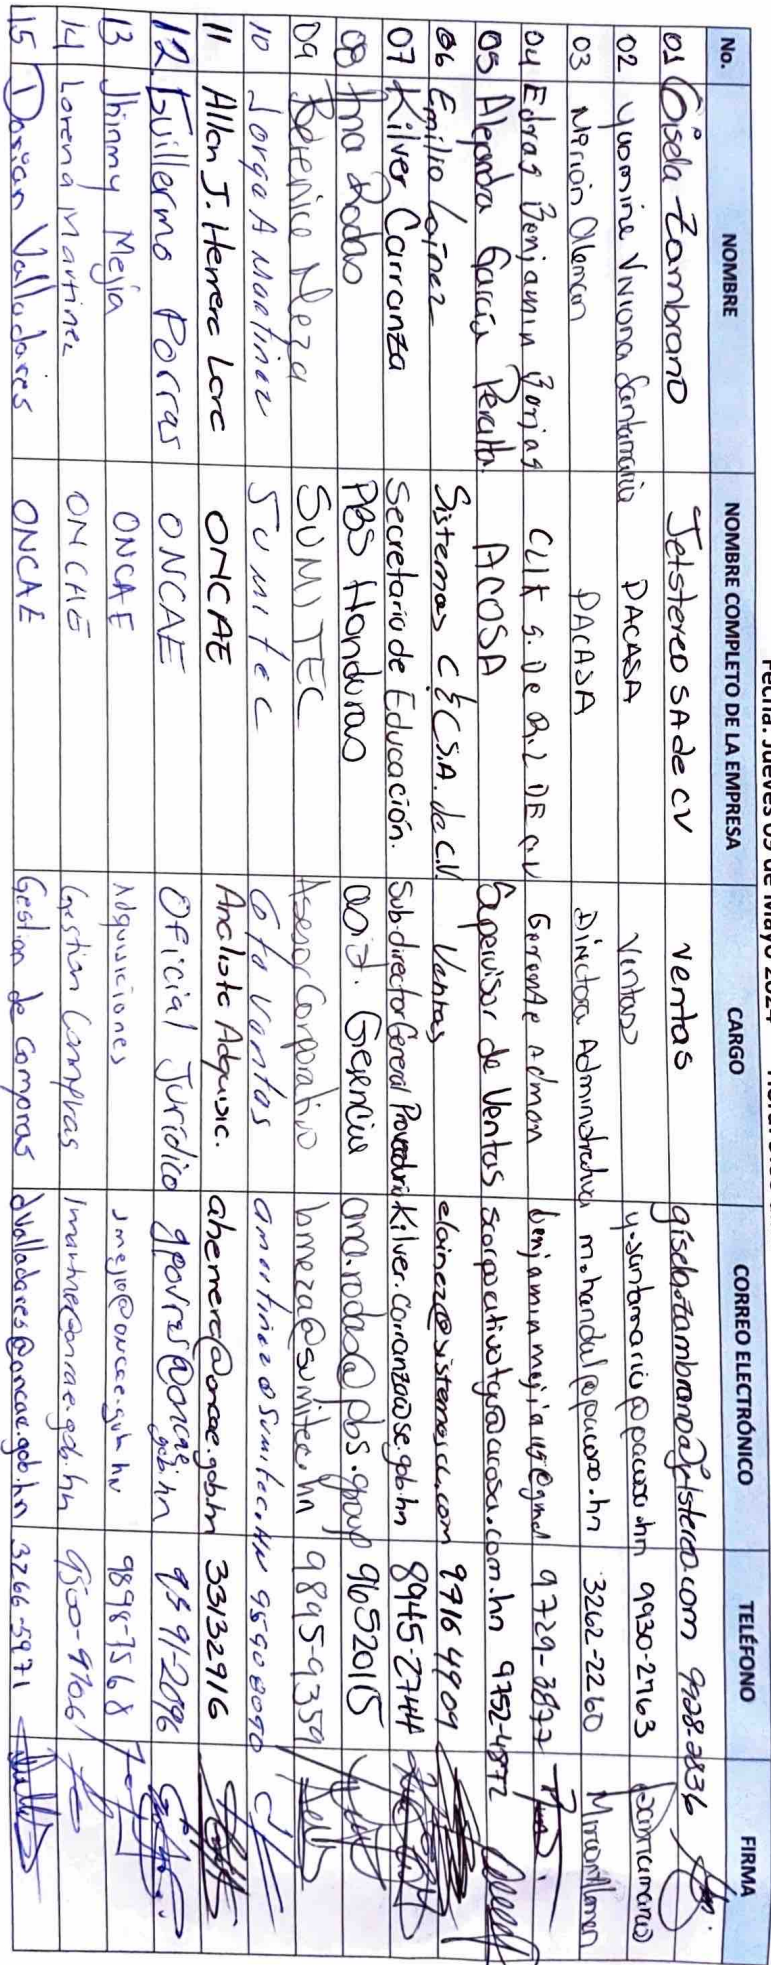 Fecha: Jueves 09 de Mayo 2024
No. NOMBRE NOMBRE COMPLETO DE LA EMPRESA CARGO CORREO ELECTRÓNICO TELÉFONO FIRMA
01 Gisela Zambrano Jetstereo SA de CV ventas gisela.zambrano@jetstereo.com 9928-2836
02 Viviana Santamaria PACASA Ventas y.santamaria@pacasa.hn 9930-2763
03 Mirian Aleman PACASA Directora Administrativa m.handal@pacasa.hn 3262-2260
04 Edras Benjamin Borjas CLIK S. De R.L DE C.V Gerente Admon 9729-3877
05 Alejandra García Peralta. ACOSA Supervisor de Ventas 9752-4872
06 Emilio Laínez Sistemas C&C S.A. de C.V. Ventas elainez@sistemascc.com 9716 4909
07 Kilver Carranza Secretaria de Educación. Sub-director General Proveeduria Kilver.carranza@se.gob.hn 8945-2744
08 Ana Rodas PBS Honduras Asist. Gerencia ana.rodas@pbs.group 96520115
09 Berenice Meza SUMITEC Asesor Corporativo bmeza@sumitec.hn 9895-9359
10 Jorge A Martinez Sumitec Ventas amartinez@Sumitec.HN 95908090
11 Allan J. Herrera Lara ONCAE Analista Adquisic. aherrera@oncae.gob.hn 33132916
12 Guillermo Porras ONCAE Oficial Jurídico gporras@oncae.gob.hn 9591-2096
13 Jhimmy Mejía ONCAE Adquisiciones jmejia@oncae.gob.hn 9898-7568
14 Lorena Martinez ONCAE Gestion Compras 9500-9706
15 Dorian Valladares ONCAE Gestion de Compras dvalladares@oncae.gob.hn 3266-5971